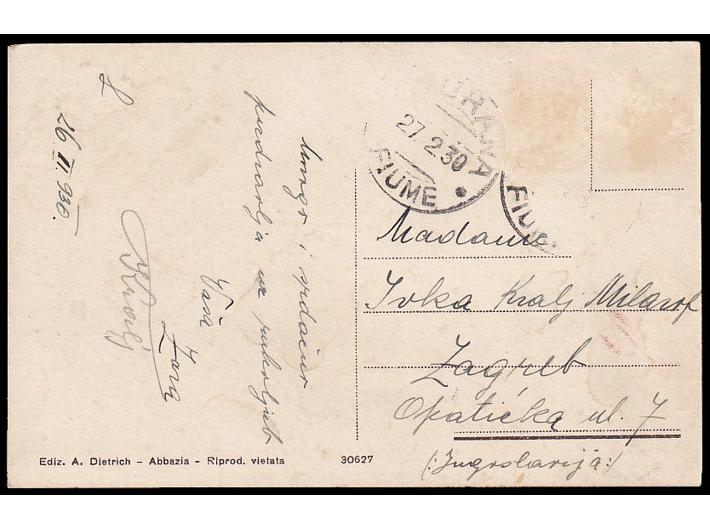 L
26 II. 930.
Mnogo i srdačno
pozdravlja uz rukoljub
Vaša
Zora
Kralj
URANA
27.2.30
FIUME
FIUME
Madame
Ivka Kralj Milarof
Zagreb
Opatička ul. 7
(:Jugoslavija:)
Ediz. A. Dietrich - Abbazia - Riprod. vietata
30627